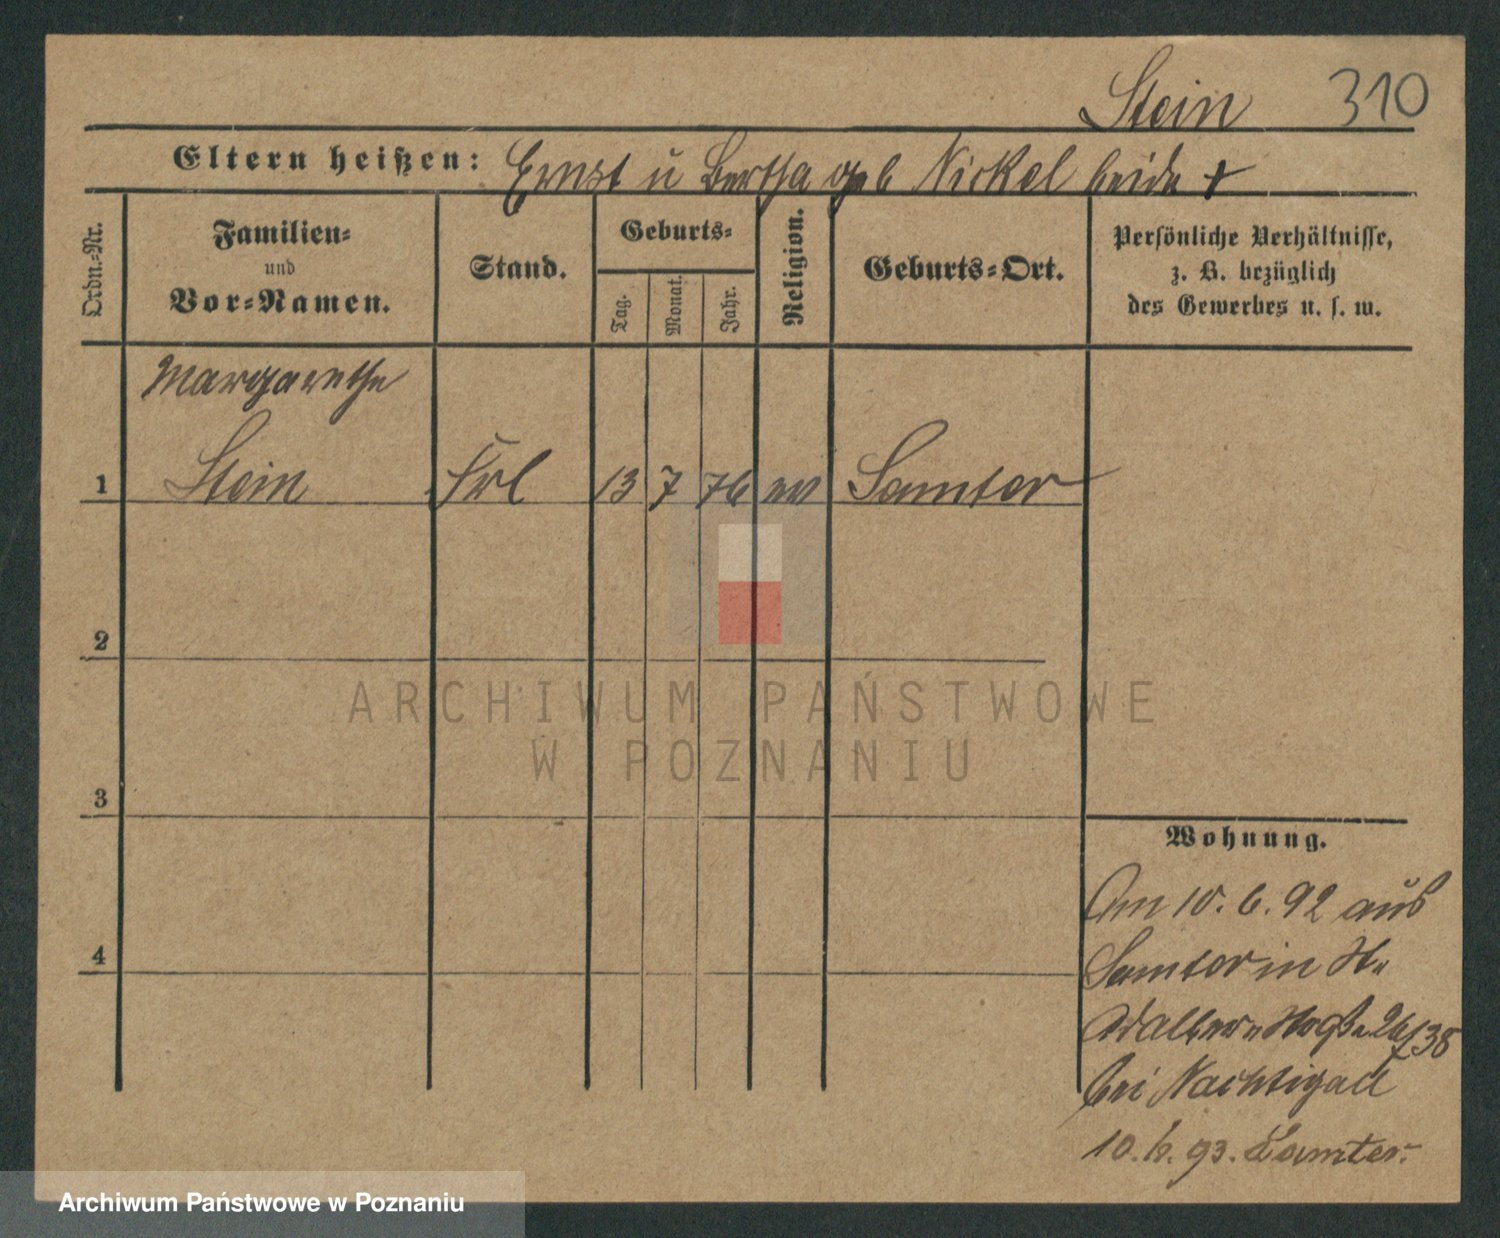 Stein 310
Eltern heißen: Ernst u Bertha geb Nickel beide †
Ordn.-Nr.
Familien-
und
Vor-Namen.
Stand.
Geburts-
Tag.
Monat.
Jahr.
Religion.
Geburts-Ort.
Persönliche Verhältnisse,
z. B. bezüglich
des Gewerbes u. s. w.
Margarethe
1 Stein Frl 13 7 76 ev Samter
2
ARCHIWUM PAŃSTWOWE
W POZNANIU
3
Wohnung.
Am 10. 6. 92 aus
4
Samter in St.
Adalber Str 26/38
bei Nachtigall
10. 6. 93. Samter.
Archiwum Państwowe w Poznaniu